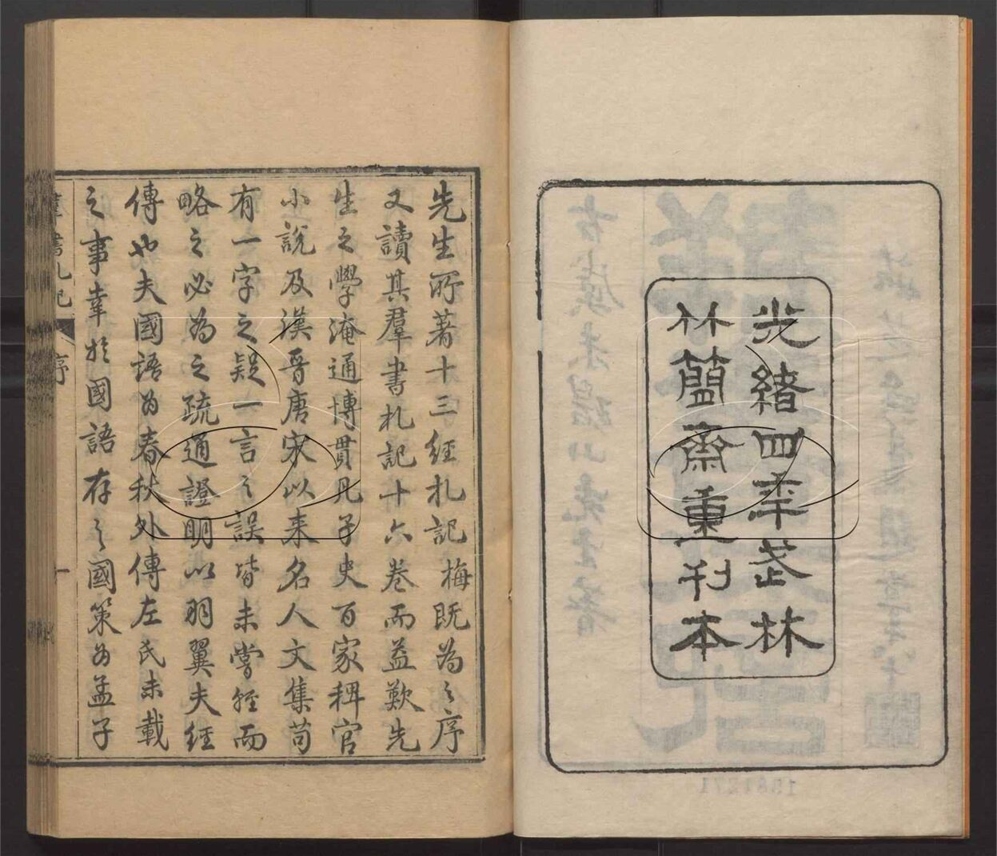 光緒四年武林
竹簡齋重刊本
先生所著十三經札記梅既為之序
又讀其羣書札記十六卷而益歎先
生之學淹通博貫凡子史百家稗官
小說及漢晉唐宋以来名人文集苟
有一字之疑一言之誤皆未嘗輕而
略之必為之疏通證明以羽翼夫經
傳也夫國語為春秋外傳左氏未載
之事幸於國語存之國策為孟子
羣書札記
序
一